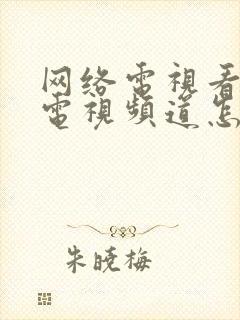 网络電視看
電視頻道怎
朱曉梅